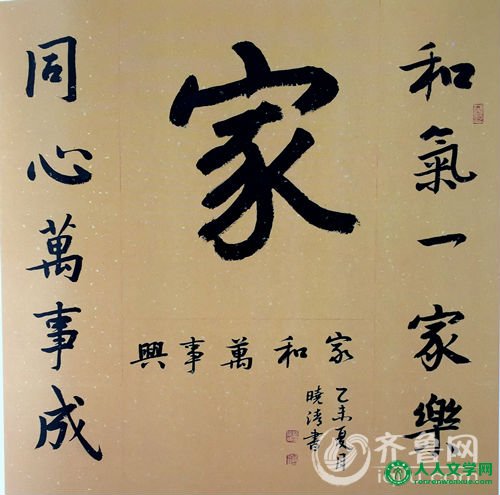 和氣一家樂
家
家和萬事興
乙未夏月
曉清書
同心萬事成
齐鲁网
人人文学网
renrenwenxue.com